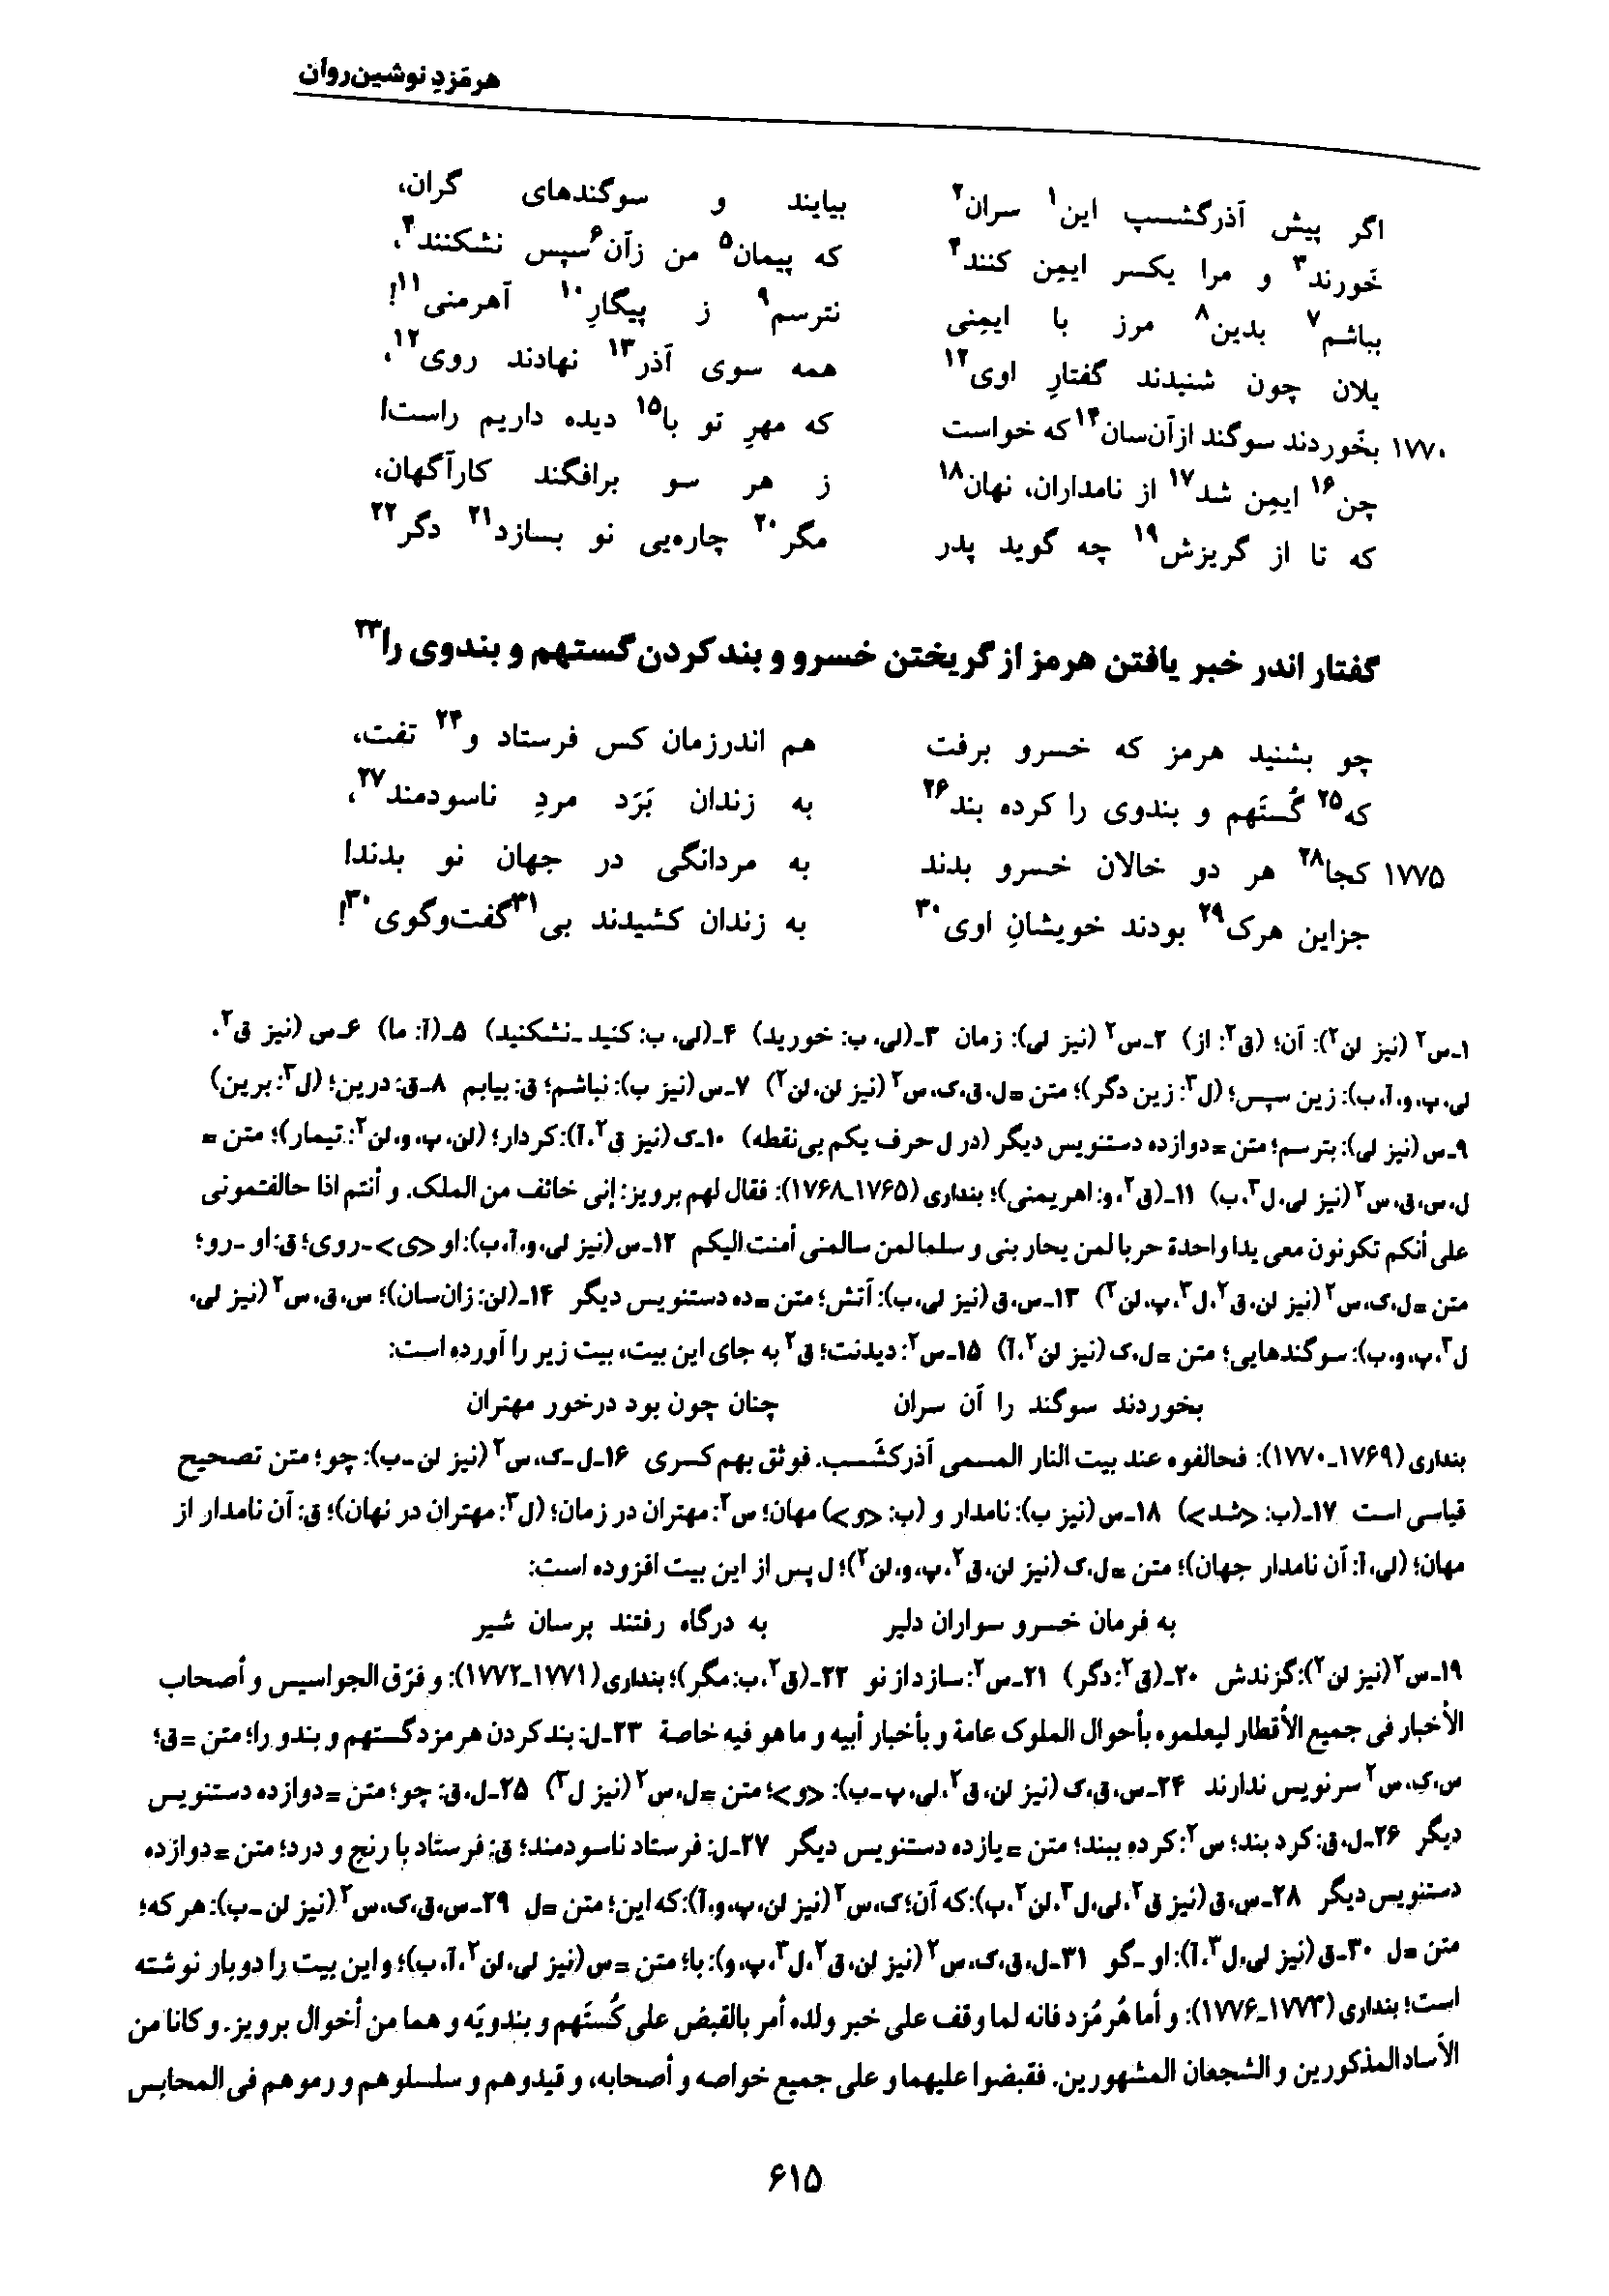 هرمَزدِ نوشین‌روان
اگر پیش آذرگشسپ این۱ سران۲ بیایند و سوگندهای گران،
خَورند۳ و مرا یکسر ایمِن کنند۴ که پیمان۵ من زآن۶ سپس نشکنند۴،
بباشم۷ بدین۸ مرز با ایمِنی نترسم۹ ز پیگارِ۱۰ آهرمنی۱۱!
یلان چون شنیدند گفتارِ اوی۱۲ همه سوی آذر۱۳ نهادند روی۱۲،
۱۷۷۰ بخَوردند سوگند ازآن‌سان۱۴ که خواست که مهرِ تو با۱۵ دیده داریم راست!
چن۱۶ ایمِن شد۱۷ از نامداران، نهان۱۸ ز هر سو برافگند کارآگهان،
که تا از گریزش۱۹ چه گوید پدر مگر۲۰ چاره‌یی نو بسازد۲۱ دگر۲۲
گفتار اندر خبر یافتن هرمز از گریختن خسرو و بند کردن گستهم و بندوی را۲۳
چو بشنید هرمز که خسرو برفت هم اندرزمان کس فرستاد و۲۴ تفت،
که۲۵ گُستَهم و بندوی را کرده بند۲۶ به زندان بَرَد مردِ ناسودمند۲۷،
۱۷۷۵ کجا۲۸ هر دو خالان خسرو بدند به مردانگی در جهان نو بدند!
جزاین هرک۲۹ بودند خویشانِ اوی۳۰ به زندان کشیدند بی۳۱ گفت‌وگوی۳۰!
۱ـ‌س۲ (نیز لن۲): آن؛ (ق۲: از) ۲ـ‌س۲ (نیز لی): زمان ۳ـ(لی، ب: خورید) ۴ـ(لی، ب: کنید ـ‌نشکنید) ۵ـ(آ: ما) ۶ـ‌س (نیز ق۲،
لی، پ، و، آ، ب): زین سپس؛ (ل۳: زین دگر)؛ متن =ل، ق، ک، س۲ (نیز لن، لن۲) ۷ـ‌س (نیز ب): نباشم؛ ق: بیابم ۸ـ‌ق: درین؛ (ل۳: برین)
۹ـ‌س (نیز لی): بترسم؛ متن =دوازده دستنویس دیگر (در ل حرف یکم بی‌نقطه) ۱۰ـ‌ک (نیز ق۲، آ): کردار؛ (لن، پ، و، لن۲: تیمار)؛ متن =
ل، س، ق، س۲ (نیز لی، ل۳، ب) ۱۱ـ(ق۲، و: اهریمنی)؛ بنداری (۱۷۶۵ـ۱۷۶۸): فقال لهم برویز: إنی خائف من الملک. و أنتم اذا حالفتمونی
علی أنکم تکونون معی یدا واحدة حربا لمن یحاربنی و سلما لمن سالمنی أمنت الیکم ۱۲ـ‌س (نیز لی، و، آ، ب): او <ی> ـ‌روی؛ ق: او ـ‌رو؛
متن =ل، ک، س۲ (نیز لن، ق۲، ل۳، پ، لن۲) ۱۳ـ‌س، ق (نیز لی، ب): آتش؛ متن =ده دستنویس دیگر ۱۴ـ(لن: زان‌سان)؛ س، ق، س۲ (نیز لی،
ل۳، پ، و، ب): سوگندهایی؛ متن =ل، ک (نیز لن۲، آ) ۱۵ـ‌س۲: دیدنت؛ ق۲ به جای این بیت، بیت زیر را آورده است:
بخوردند سوگند را آن سران چنان چون بود درخور مهتران
بنداری (۱۷۶۹ـ۱۷۷۰): فحالفوه عند بیت النار المسمی آذرکشَسب. فوثق بهم کسری ۱۶ـ‌ل ـ‌ک، س۲ (نیز لن ـ‌ب): چو؛ متن تصحیح
قیاسی است ۱۷ـ(ب: <شد>) ۱۸ـ‌س (نیز ب): نامدار و (ب: <و>) مهان؛ س۲: مهتران در زمان؛ (ل۳: مهتران در نهان)؛ ق: آن نامدار از
مهان؛ (لی، آ: آن نامدار جهان)؛ متن =ل، ک (نیز لن، ق۲، پ، و، لن۲)؛ ل پس از این بیت افزوده است:
به فرمان خسرو سواران دلیر به درگاه رفتند برسان شیر
۱۹ـ‌س۲ (نیز لن۲): گزندش ۲۰ـ(ق۲: دگر) ۲۱ـ‌س۲: سازد از نو ۲۲ـ(ق۲، ب: مگر)؛ بنداری (۱۷۷۱ـ۱۷۷۲): و فرّق الجواسیس و أصحاب
الأخبار فی جمیع الأقطار لیعلموه بأحوال الملوک عامة و بأخبار أبیه و ما هو فیه خاصة ۲۳ـ‌ل: بند کردن هرمزد گستهم و بندو را؛ متن =ق؛
س، ک، س۲ سرنویس ندارند ۲۴ـ‌س، ق، ک (نیز لن، ق۲، لی، پ ـ‌ب): <و>؛ متن =ل، س۲ (نیز ل۳) ۲۵ـ‌ل، ق: چو؛ متن =دوازده دستنویس
دیگر ۲۶ـ‌ل، ق: کرد بند؛ س۲: کرده ببند؛ متن =یازده دستنویس دیگر ۲۷ـ‌ل: فرستاد ناسودمند؛ ق: فرستاد با رنج و درد؛ متن =دوازده
دستنویس دیگر ۲۸ـ‌س، ق (نیز ق۲، لی، ل۳، لن۲، ب): که آن؛ ک، س۲ (نیز لن، پ، و، آ): که این؛ متن =ل ۲۹ـ‌س، ق، ک، س۲ (نیز لن ـ‌ب): هر که؛
متن =ل ۳۰ـ‌ق (نیز لی، ل۳، آ): او ـ‌گو ۳۱ـ‌ل، ق، ک، س۲ (نیز لن، ق۲، ل۳، پ، و): با؛ متن =س (نیز لی، لن۲، آ، ب)؛ و این بیت را دوبار نوشته
است؛ بنداری (۱۷۷۳ـ۱۷۷۶): و أما هُرمُزد فانه لما وقف علی خبر ولده أمر بالقبض علی کُستَهم و بندویَه و هما من أخوال برویز. و کانا من
الآساد المذکورین و الشجعان المشهورین. فقبضوا علیهما و علی جمیع خواصه و أصحابه، و قیدوهم و سلسلوهم و رموهم فی المحابس
۶۱۵